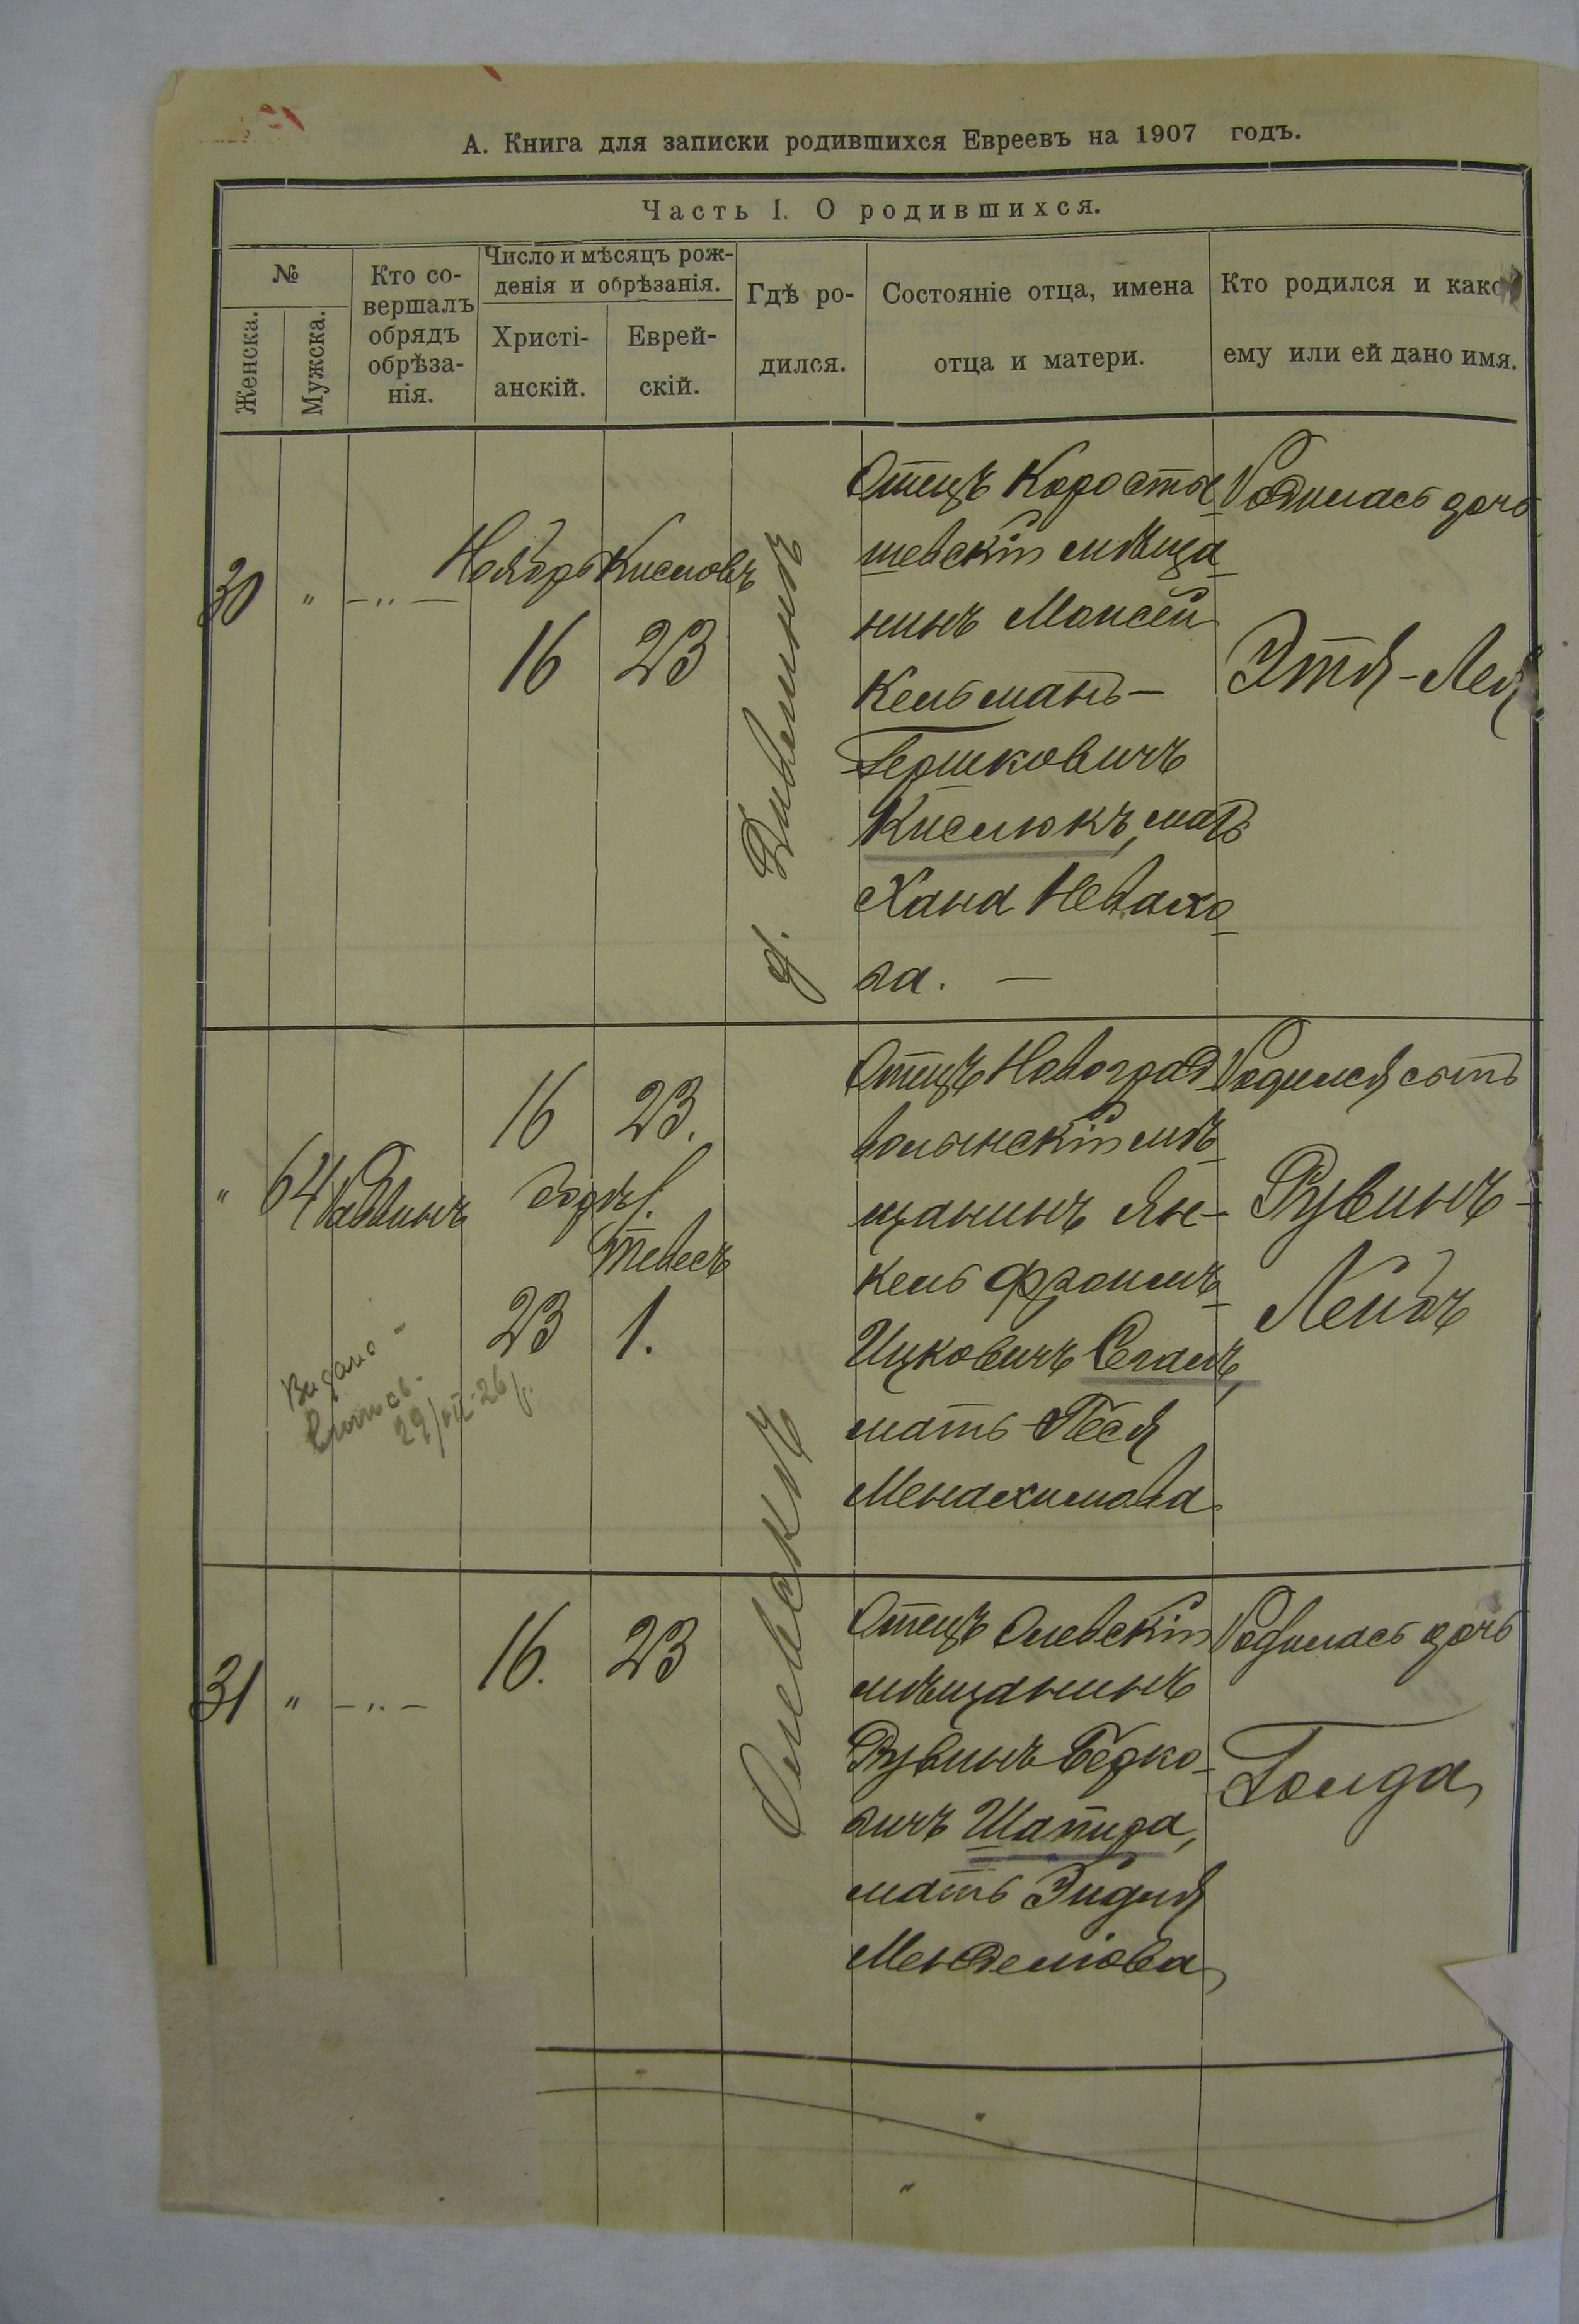 А. Книга для записки родившихся Евреевъ на 1907 годъ.
Часть I. О родившихся.
№
Женска.
Мужска.
Кто со-
вершалъ
обрядъ
обрѣза-
нія.
Число и мѣсяцъ рож-
денія и обрѣзанія.
Христі-
анскій.
Еврей-
скій.
Гдѣ ро-
дился.
Состояніе отца, имена
отца и матери.
Кто родился и како
ему или ей дано имя.
30
"
—"—
Ноябрь
16
Кисловъ
23
д.
Отецъ Коросты
шевскій мѣща
нинъ Моисей
Кельманъ—
Гершковичъ
Кислюкъ, мать
Хана Невахо
ва. —
Родилась дочь
Этя-Лея
"
64
Раввинъ
16
23.
23
Тевесъ
1.
Отецъ Новоград
волынскій мѣ
щанинъ Ян-
кель Фроимъ
Ицковичъ Сегалъ,
мать Песя
Менахимова
Родился сынъ
Рувинъ-
Лейбъ
Видано
29/VII-26
Олевскъ
31
"
—"—
16.
23
Отецъ Олевскій
мѣщанинъ
Рувинъ Берко-
вичъ Шапира,
мать Эйдля
Менделіова
Родилась дочь
Голда